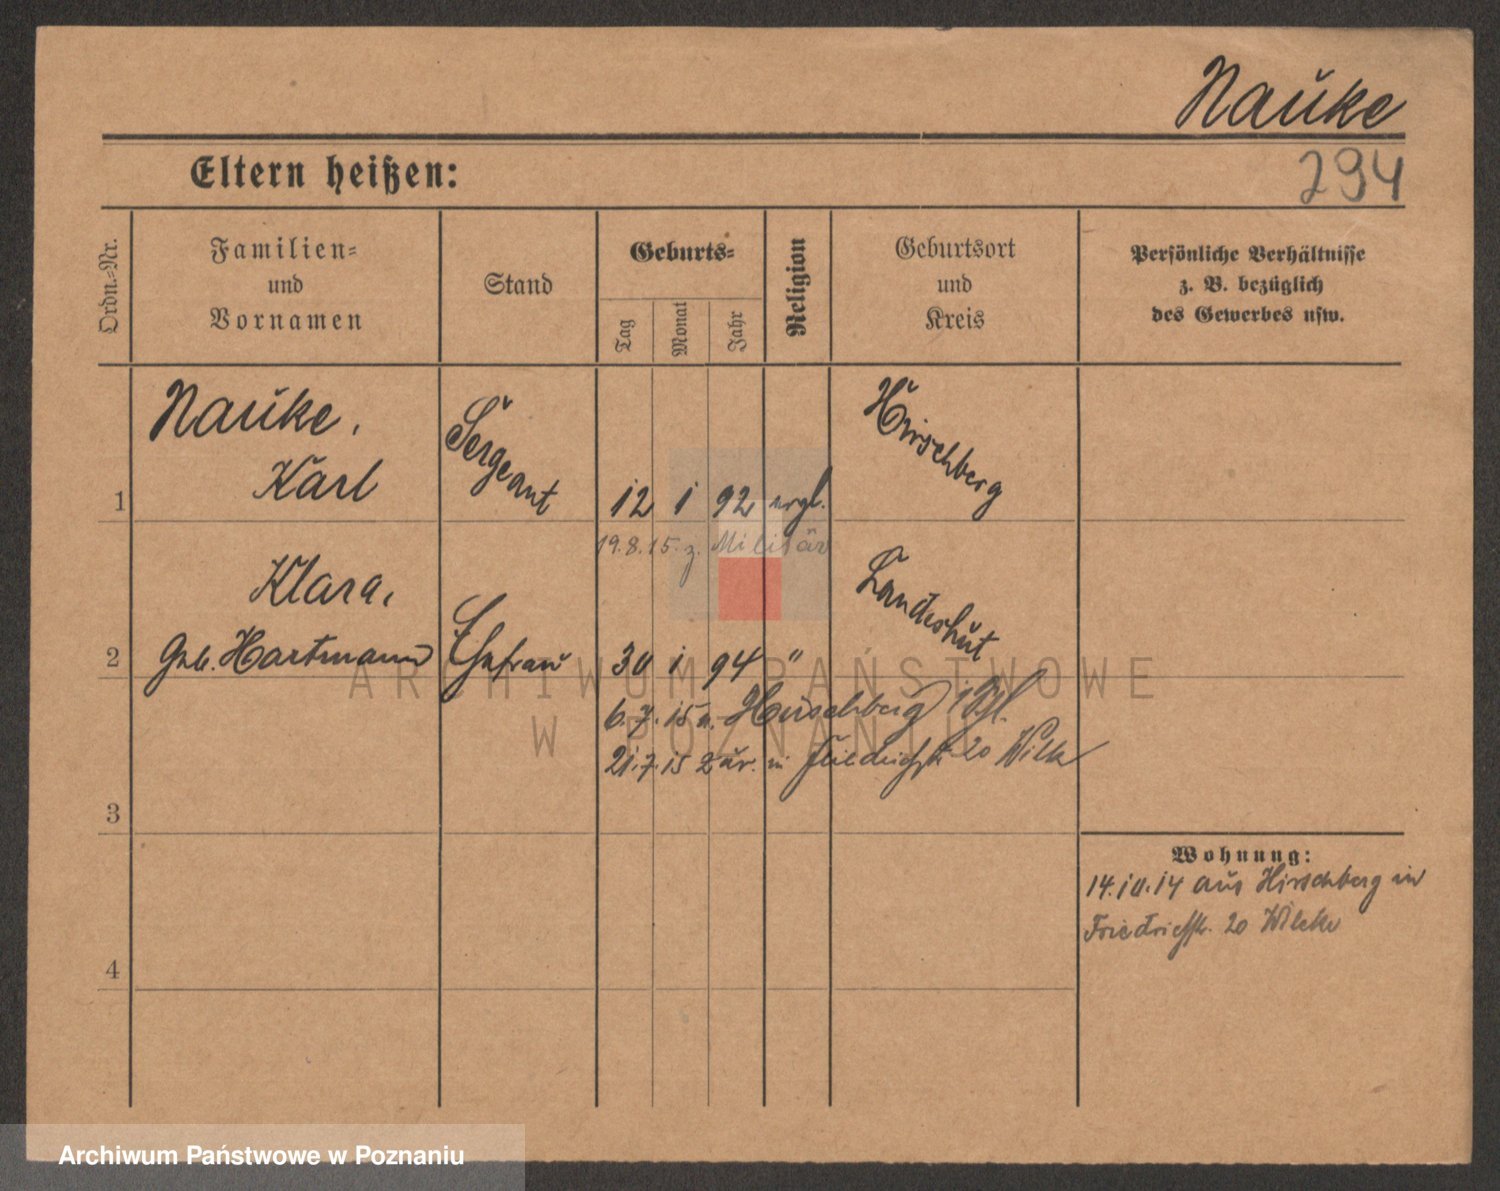 Nauke
Eltern heißen:
294
Ordn.-Nr.
Familien-
und
Vornamen
Stand
Geburts-
Tag
Monat
Jahr
Religion
Geburtsort
und
Kreis
Persönliche Verhältnisse
z. B. bezüglich
des Gewerbes usw.
1
Nauke,
Karl
Sergeant
12 1 92
Hirschberg
19.8.15. z. Militär
2
Klara,
geb. Hartmann
Ehefrau
30 1 94 "
Landeshut
6.7.15 n. Hirschberg i/Schl.
21.7.15 zur. in Friedrichstr. 20 Wilke
3
Wohnung:
14.10.14 aus Hirschberg in
Friedrichstr. 20 Wilcke
4
ARCHIWUM PAŃSTWOWE
W POZNANIU
Archiwum Państwowe w Poznaniu